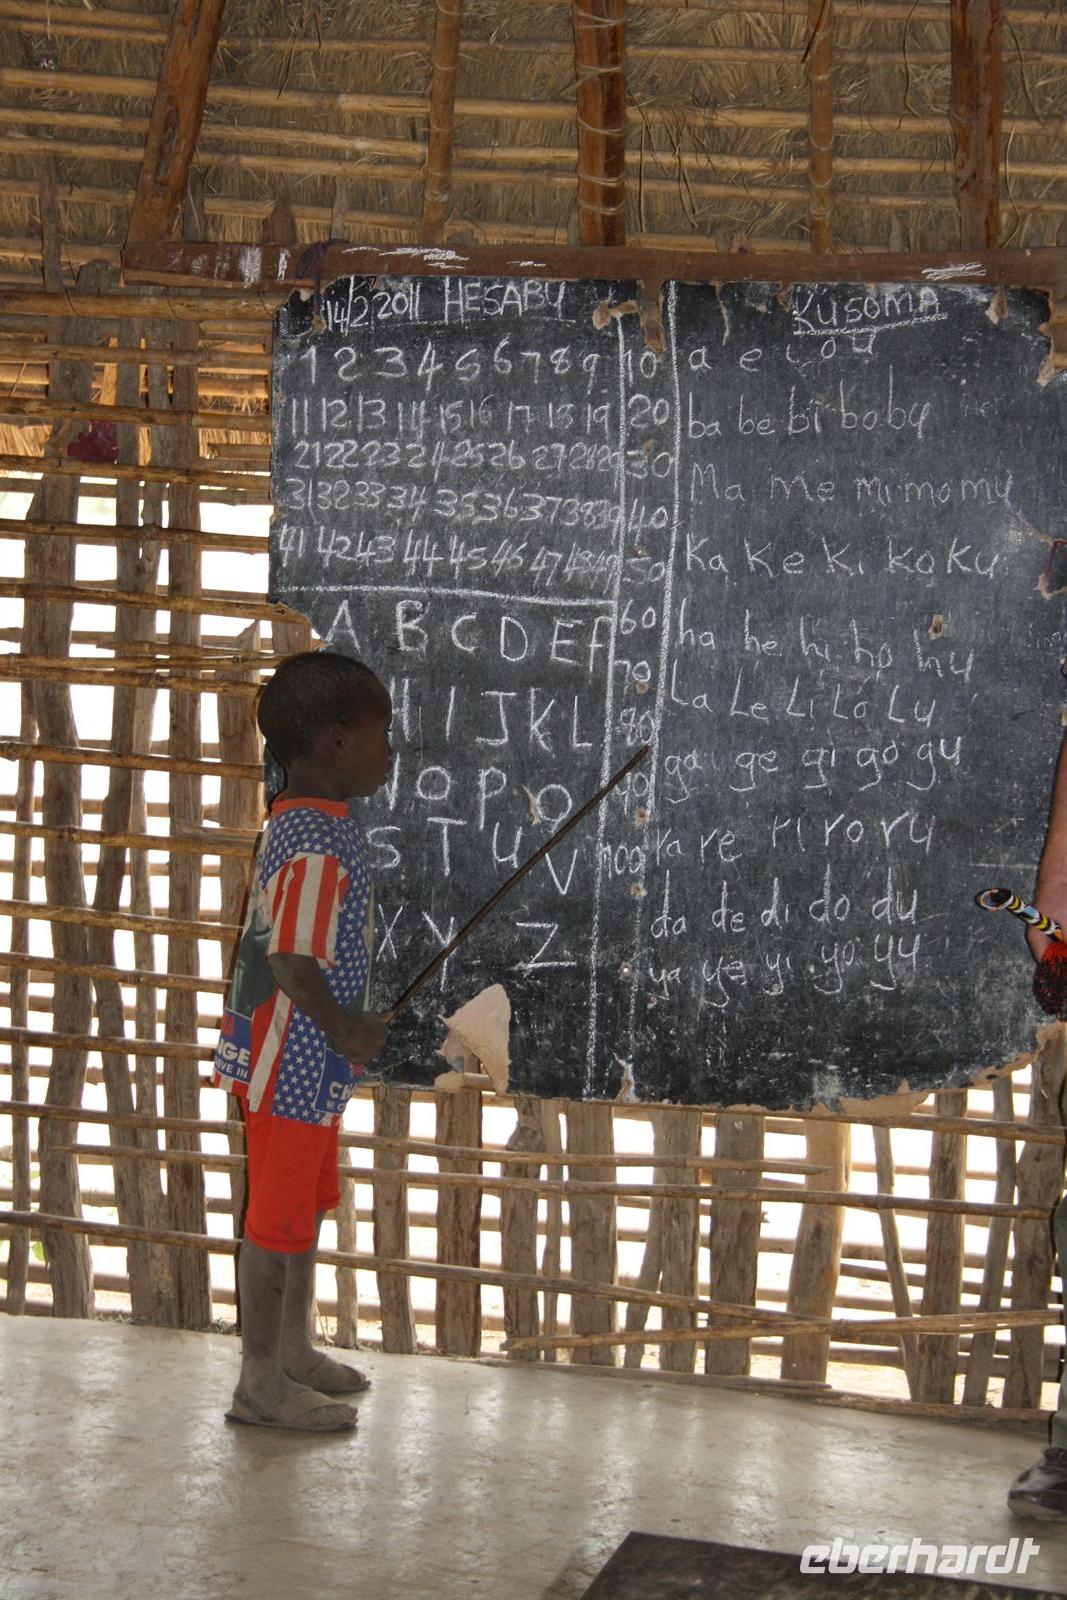 14/2 2011 HESABU
1 2 3 4 5 6 7 8 9 10
11 12 13 14 15 16 17 18 19 20
21 22 23 24 25 26 27 28 29 30
31 32 33 34 35 36 37 38 39 40
41 42 43 44 45 46 47 48 49 50
60
70
80
90
100
A B C D E F
H I J K L
N O P Q
S T U V
X Y Z
KUSOMA
a e i o u
ba be bi bo bu
Ma me mi mo mu
Ka Ke Ki ko Ku
ha he hi ho hu
La Le Li Lo Lu
ga ge gi go gu
ra re ri ro ru
da de di do du
ya ye yi yo yu
eberhardt